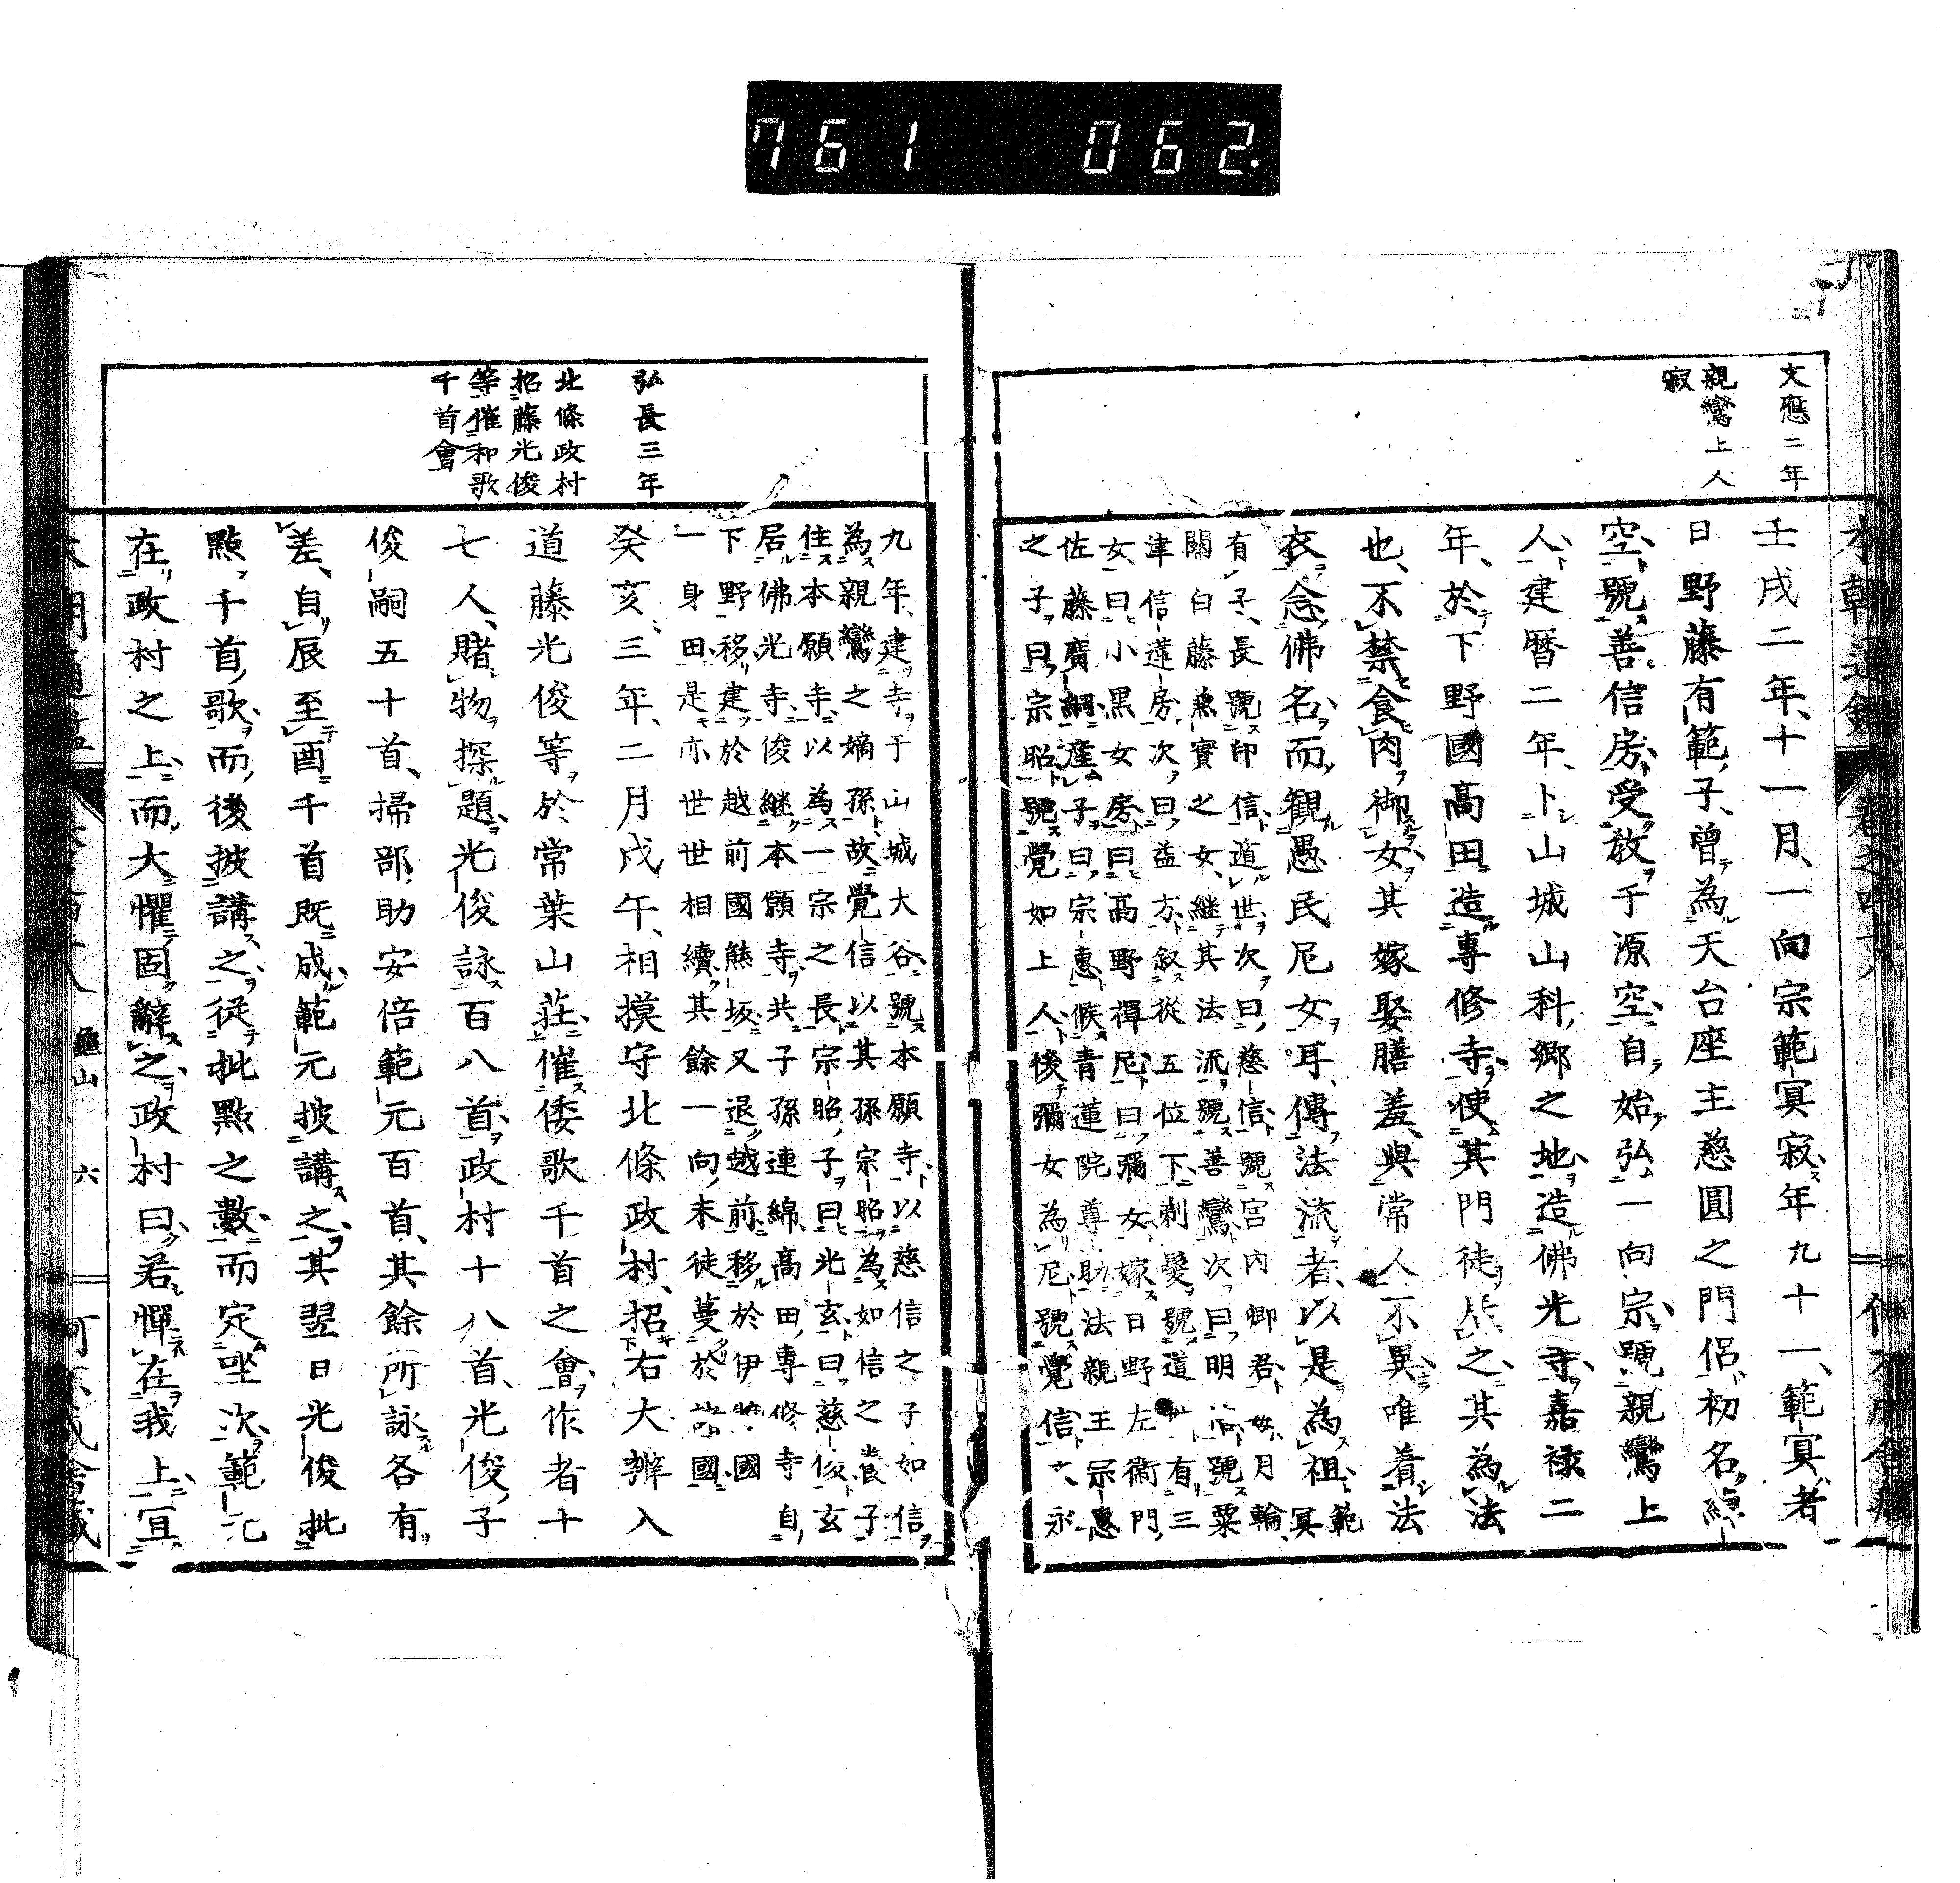 761 062
文應二年
親鸞上人
寂
壬戌二年、十一月、一向宗範冥寂年九十一、範冥者
日野藤有範子、曾為天台座主慈圓之門侶、初名綽
空、號善信房、受教于源空、自始弘一向宗、號親鸞上
人、建暦二年、卜山城山科郷之地、造佛光寺、嘉禄二
年、於下野國髙田造專修寺、使其門徒居之、其為法
也、不禁食肉御女、其嫁娶膳羞、與常人不異、唯着法
衣念佛名、而觀愚民尼女耳、傳法流者、以是為祖、範冥
有子、長號印信遁世、次曰慈信、號宮内卿君、母月輪
關白藤兼實之女、継其法流、號善鸞、次曰明信、號粟
津信蓮房、次曰益方、叙從五位下、剃髪號道性、有三
女、曰小黒女房、曰髙野禪尼、曰彌女、嫁日野左衛門
佐藤廣綱産子、曰宗惠、候青蓮院尊助法親王、宗惠
之子曰宗昭、號覺如上人、後彌女為尼、號覺信、文永
九年、建寺于山城大谷、號本願寺、以慈信之子如信
為親鸞之嫡孫、故覺信以其孫宗昭為如信之養子、
住本願寺、以為一宗之長、宗昭子曰光玄、曰慈俊、玄
居佛光寺、俊継本願寺、共子孫連綿、髙田專修寺自
下野移建於越前國熊坂、又退越前、移於伊勢國
一身田、是亦世世相續、其餘一向末徒蔓於諸國
弘長三年
北條政村
招藤光俊
等催和歌
千首會
癸亥、三年、二月戊午、相摸守北條政村、招右大辨入
道藤光俊等、於常葉山莊、催倭歌千首之會、作者十
七人、賭物探題、光俊詠百八首、政村十八首、光俊子
俊嗣五十首、掃部助安倍範元百首、其餘所詠各有
差、自辰至酉千首既成、範元披講之、其翌日光俊批
點千首歌、而後披講之、從批點之數、而定坐次、範元
在政村之上、而大懼固辭之、政村曰、若憚在我上、宜
龜山 六